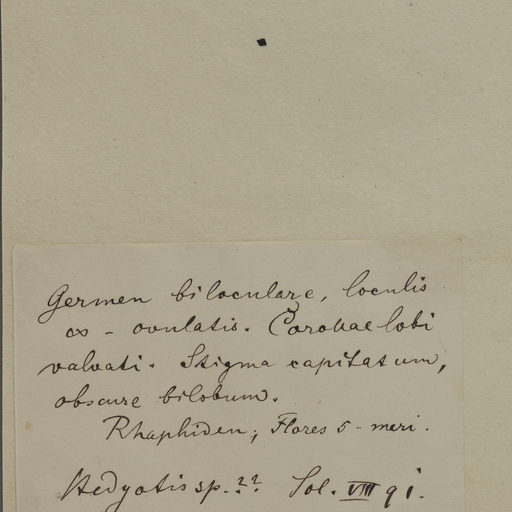 Germen biloculare, loculis
∞ - ovulatis. Corollae lobi
valvati. Stigma capitatum,
obscure bilobum.
Rhaphiden; Flores 5-meri.
Hedyotis sp. ?? Sol. VIII 91.